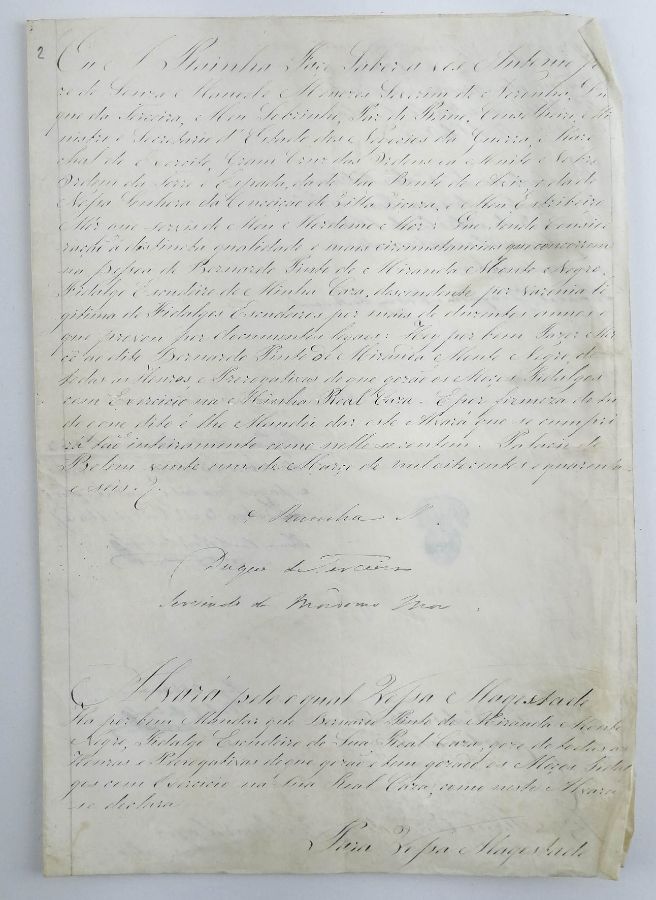 2
Eu A Rainha Faço Saber a vós Antonio Jo-
zé de Souza Manoel e Menezes Severim de Noronha, Du-
que da Terceira, Meu Sobrinho, Par do Reino, Conselheiro, Mi-
nistro e Secretario d'Estado dos Negocios da Guerra, Mare-
chal do Exercito, Gram Cruz das Ordens da Muito Nobre
Ordem da Torre e Espada, da de Sao Bento de Aviz, e da de
Nossa Senhora da Conceição de Villa Viçoza, e Meu Estribeiro
Mór que servis de Meu Mordomo Mór: Que Tendo Conside-
ração á distincta qualidade e mais circumstancias que concorrem
na Pessoa de Bernardo Pinto de Miranda Monte Negro,
Fidalgo Escudeiro de Minha Caza, descendente por varonia le-
gitima de Fidalgos Escudeiros por mais de duzentos annos o
que provou por documentos legaes: Hey por bem Fazer Mer-
cê ao dito Bernardo Pinto de Miranda Monte Negro, de
todas as Honras, e Prerogativas de que gozão os Moços Fidalgos
com Exercicio na Minha Real Caza. E por firmeza de tu-
do o que dito é lhe Mandei dar este Alvará que se cumpri-
rá tão inteiramente como nelle se contem. Palacio de
Belem vinte um de Março de mil oitocentos e quarenta
e seis
A Rainha
Duque da Terceira
Servindo de Mordomo Mor
Alvará pelo qual Vossa Magestade
Ha por bem Mandar que Bernardo Pinto de Miranda Monte
Negro, Fidalgo Escudeiro da Sua Real Caza, goze de todas as
Honras e Prerogativas de que gozão e tem gozado os Moços Fidal-
gos com Exercicio na Sua Real Caza, como neste Alvará
se declara
Para Vossa Magestade